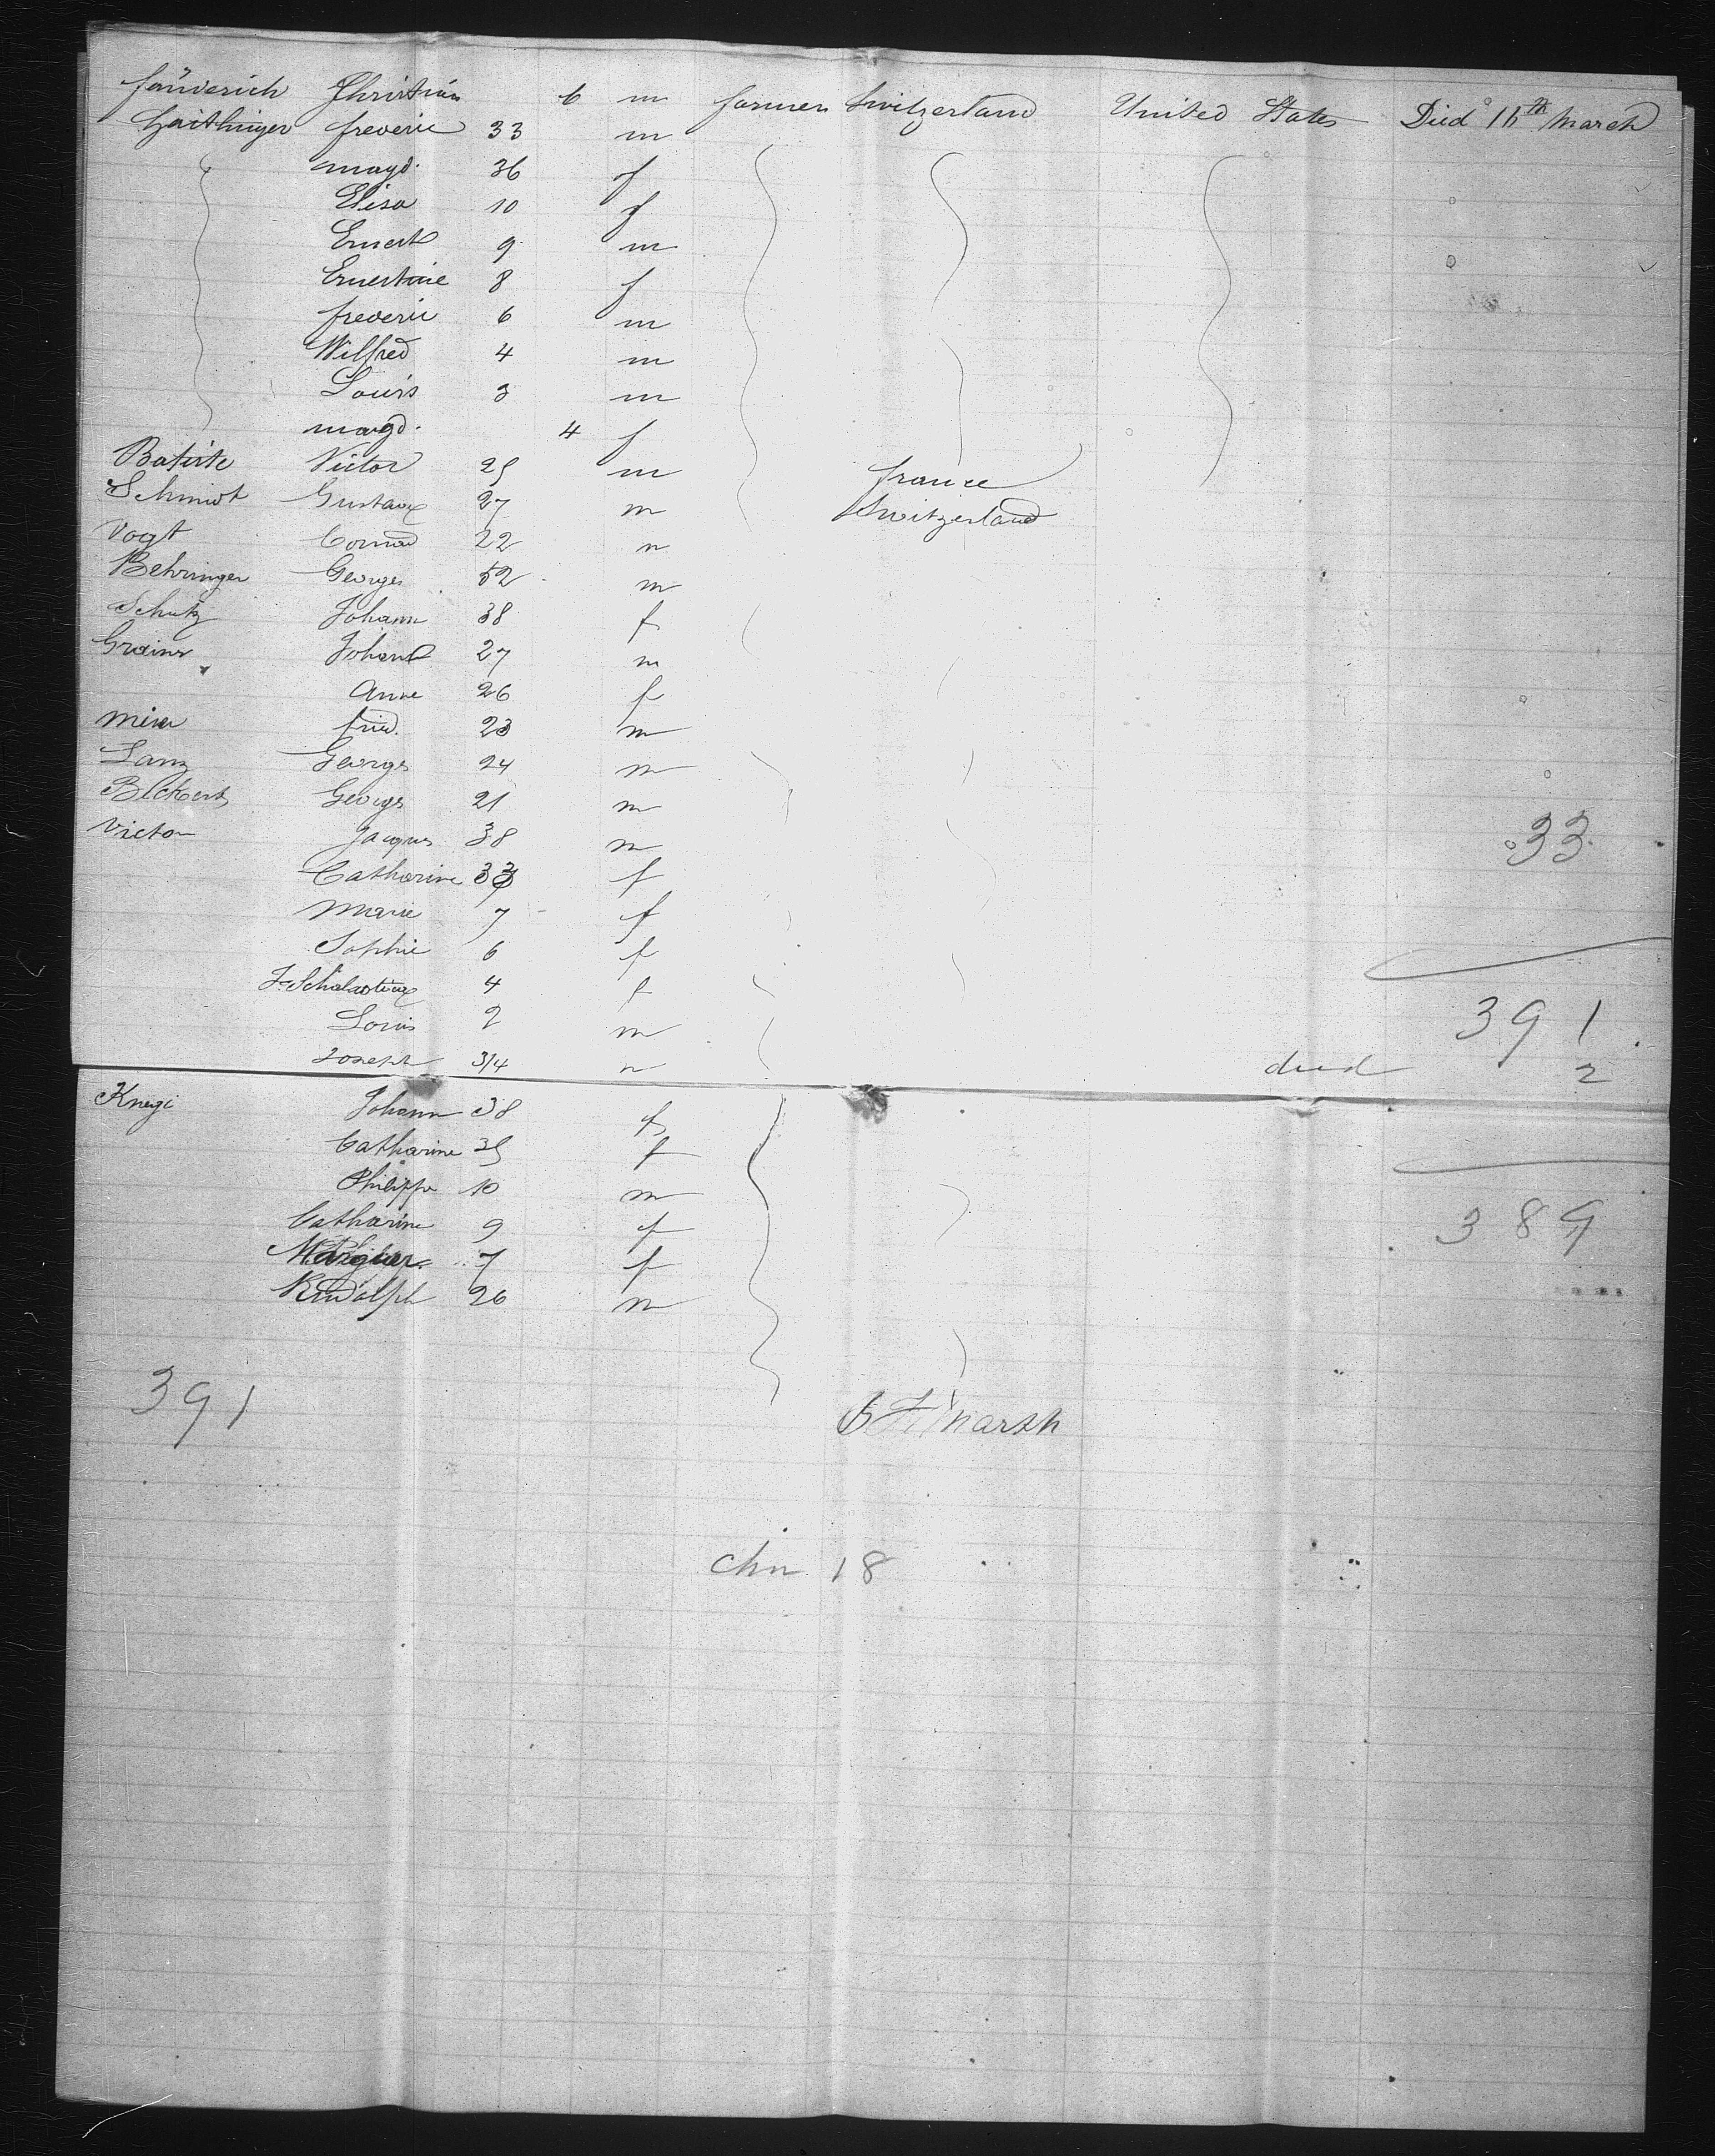 Fänderich Christian 6 m farmer Switzerland United States Died 11th March
Gaithinger frederic 33 m
magd. 36 f
Elisa 10 f
Ernest 9 m
Ernestine 8 f
frederic 6 m
Wilfred 4 m
Louis 3 m
magd. 4 f
Batiste Victor 25 m france
Schmidt Gustave 27 m Switzerland
Vogt Conrad 22 m
Behringer Georges 52 m
Schutz Johann 38 f
Johann 27 m
Anne 26 f
fried. 23 m
Lanz Georges 24 m
Georges 21 m
Victor Jacques 38 m 33
Catharine 33 f
Marie 7 f
Sophie 6 f
4 f
Louis 2 m 391
Joseph 3/4 m died 2
Johann 38 f
Catharine 35 f
Philippe 10 m
Catharine 9 f 389
7 f
Rudolph 26 m
391
marsh
chn 18